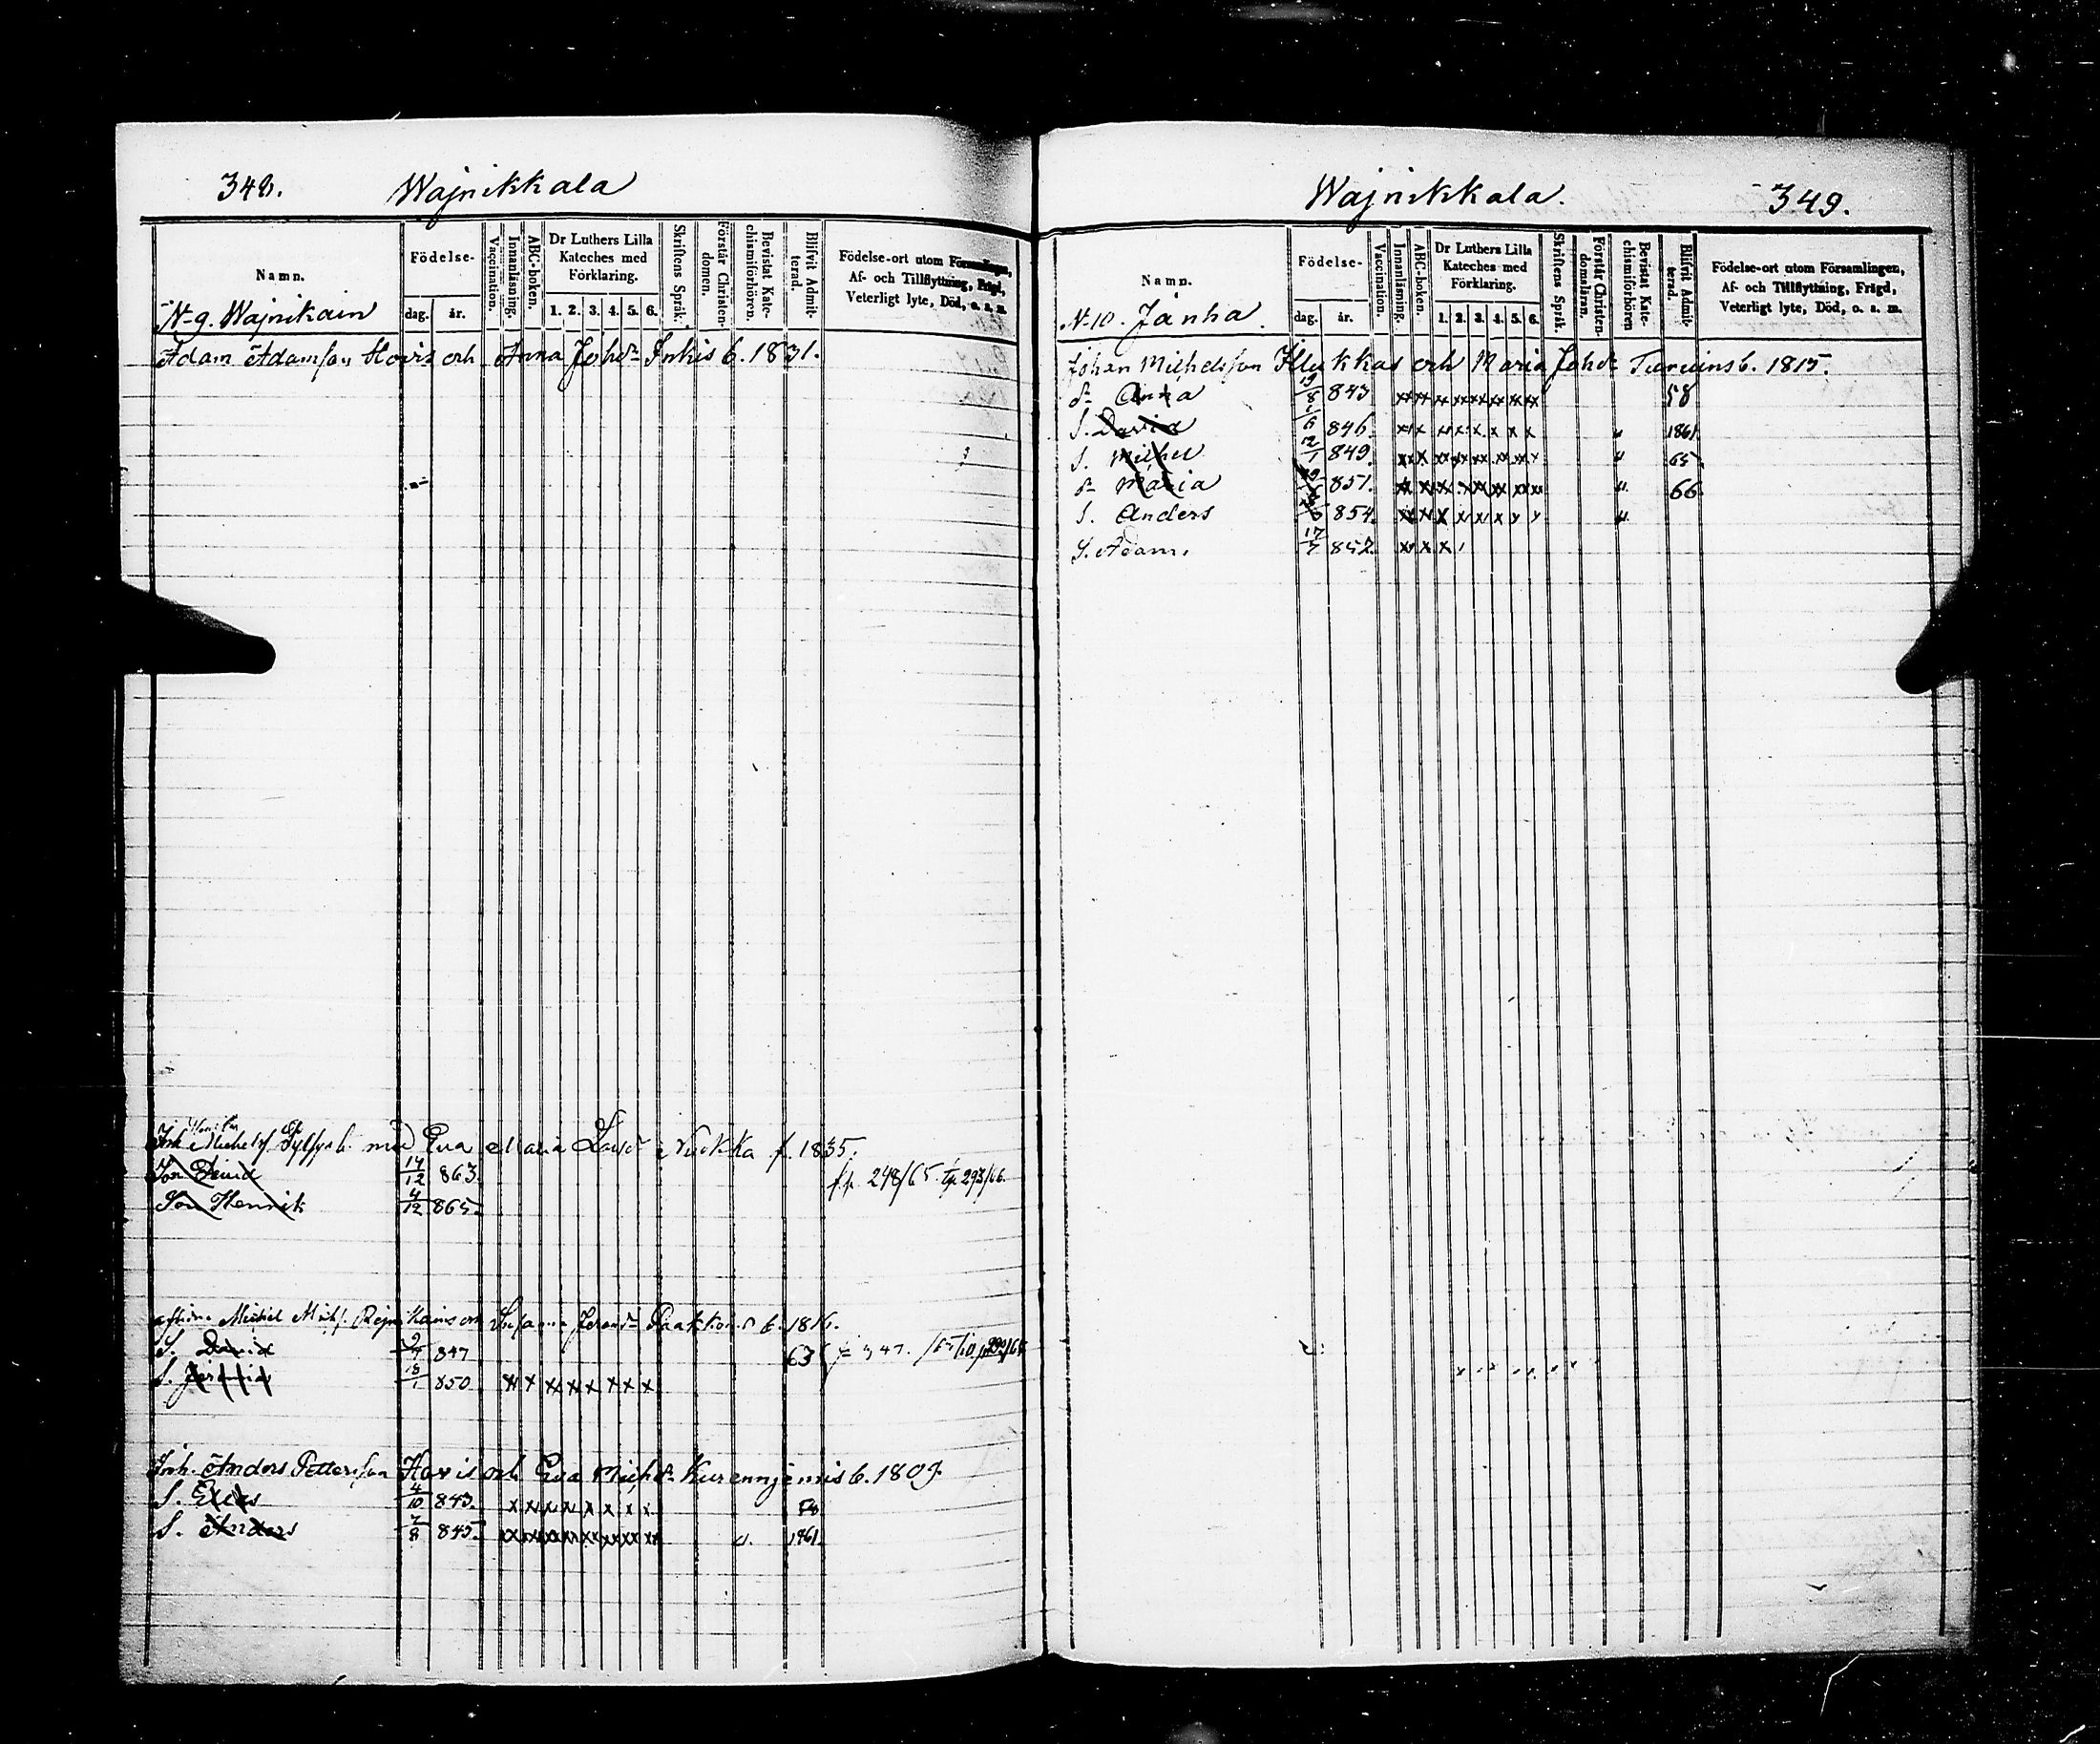 348. Wajnikkala
Namn.
Födelse-
dag. år.
Vaccination.
Innanläsning.
ABC-boken.
Dr Luthers Lilla
Kateches med
Förklaring.
1. 2. 3. 4. 5. 6.
Skriftens Språk.
Förstår Christen-
domen.
Bevistat Kate-
chismiförhören.
Blifvit Admit-
terad.
Födelse-ort utom Församlingen,
Af- och Tillflyttning, Frägd,
Veterligt lyte, Död, o. s. m.
N-9. Wajnikain
Adam Adamsson Hovis och Anna Johdr Inkis b. 1831.
Michelss. med Eva Maria Nuokka f. 1835.
Son David 14/12 863. fr. 248/65. 293/66.
Son Henrik 4/12 865.
Michel och Susanna Paakkon b. 1816.
S. David 2/4 847 63
S. Jeremia 18/1 850 x x x x x x x x
Inh. Anders Pettersson Hovis och Eva Michdr Kurennjemis b. 1809.
S. Elias 4/10 843. x x x x x x x x 58
S. Anders 7/8 845. xx xx xx xx xx xx xx xx 1861.
Wajnikkala. 349.
Namn.
Födelse-
dag. år.
Vaccination.
Innanläsning.
ABC-boken.
Dr Luthers Lilla
Kateches med
Förklaring.
1. 2. 3. 4. 5. 6.
Skriftens Språk.
Förstår Christen-
domsläran.
Bevistat Kate-
chismiförhören
Blifvit Admit-
terad.
Födelse-ort utom Församlingen,
Af- och Tillflyttning, Frägd,
Veterligt lyte, Död, o. s. m.
N-10. Jänha.
Johan Michelsson Ilukkas och Maria Johdr b. 1815.
dr Anna 19/8 843 xx xx xx xx xx xx xx xx 58
S. David 6 846. xx x xx x x x x x " 1861.
S. Michel 12/1 849. xx x xx xx xx xx xx x " 65
dr Maria 851. xx xx x xx xx xx xx " 66
S. Anders 854. xx xx x x x x x x "
S. Adam. 17/7 857. x x x